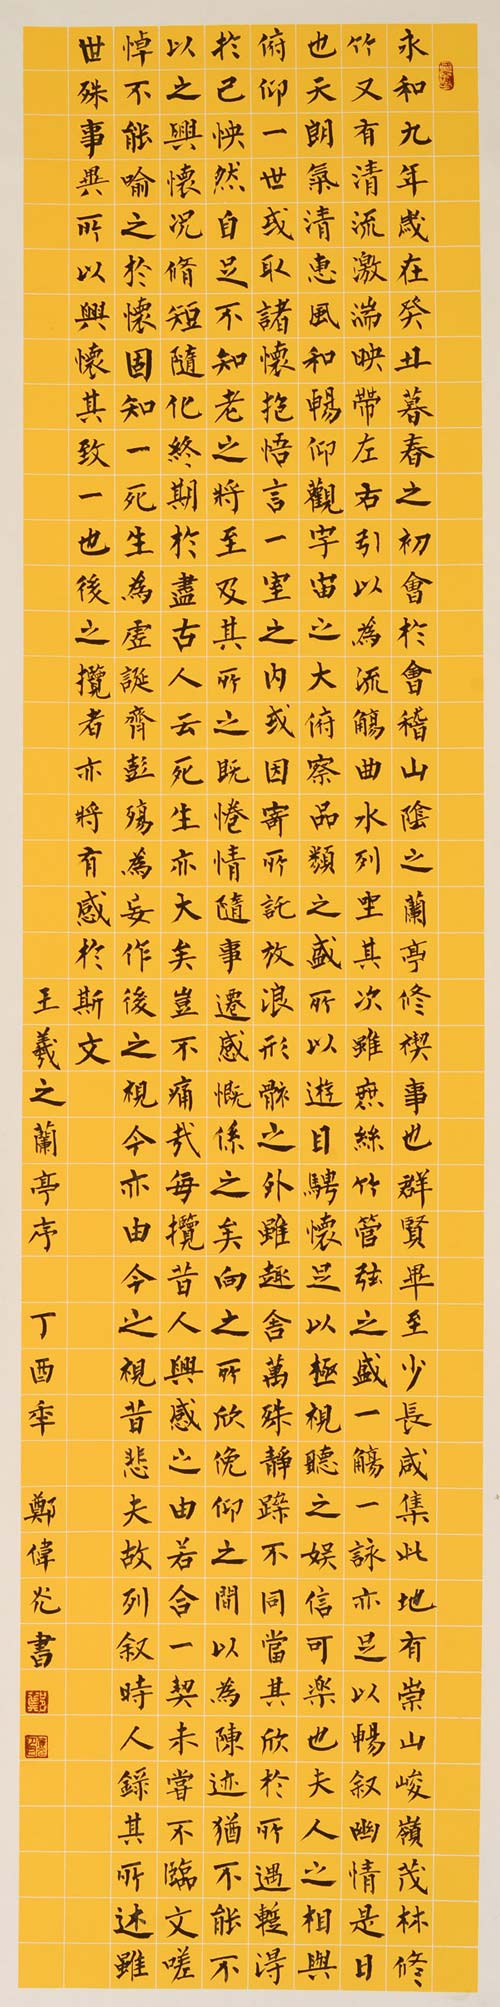 永和九年歲在癸丑暮春之初會於會稽山陰之蘭亭修禊事也群賢畢至少長咸集此地有崇山峻嶺茂林修
竹又有清流激湍映帶左右引以為流觴曲水列坐其次雖無絲竹管弦之盛一觴一詠亦足以暢叙幽情是日
也天朗氣清惠風和暢仰觀宇宙之大俯察品類之盛所以遊目騁懷足以極視聽之娛信可樂也夫人之相與
俯仰一世或取諸懷抱悟言一室之內或因寄所託放浪形骸之外雖趣舍萬殊靜躁不同當其欣於所遇暫得
於己怏然自足不知老之將至及其所之既惓情隨事遷感慨係之矣向之所欣俛仰之間以為陳迹猶不能不
以之興懷況脩短隨化終期於盡古人云死生亦大矣豈不痛哉每攬昔人興感之由若合一契未嘗不臨文嗟
悼不能喻之於懷固知一死生為虛誕齊彭殤為妄作後之視今亦由今之視昔悲夫故列叙時人錄其所述雖
世殊事異所以興懷其致一也後之攬者亦將有感於斯文
王羲之蘭亭序 丁酉年 鄭偉光書